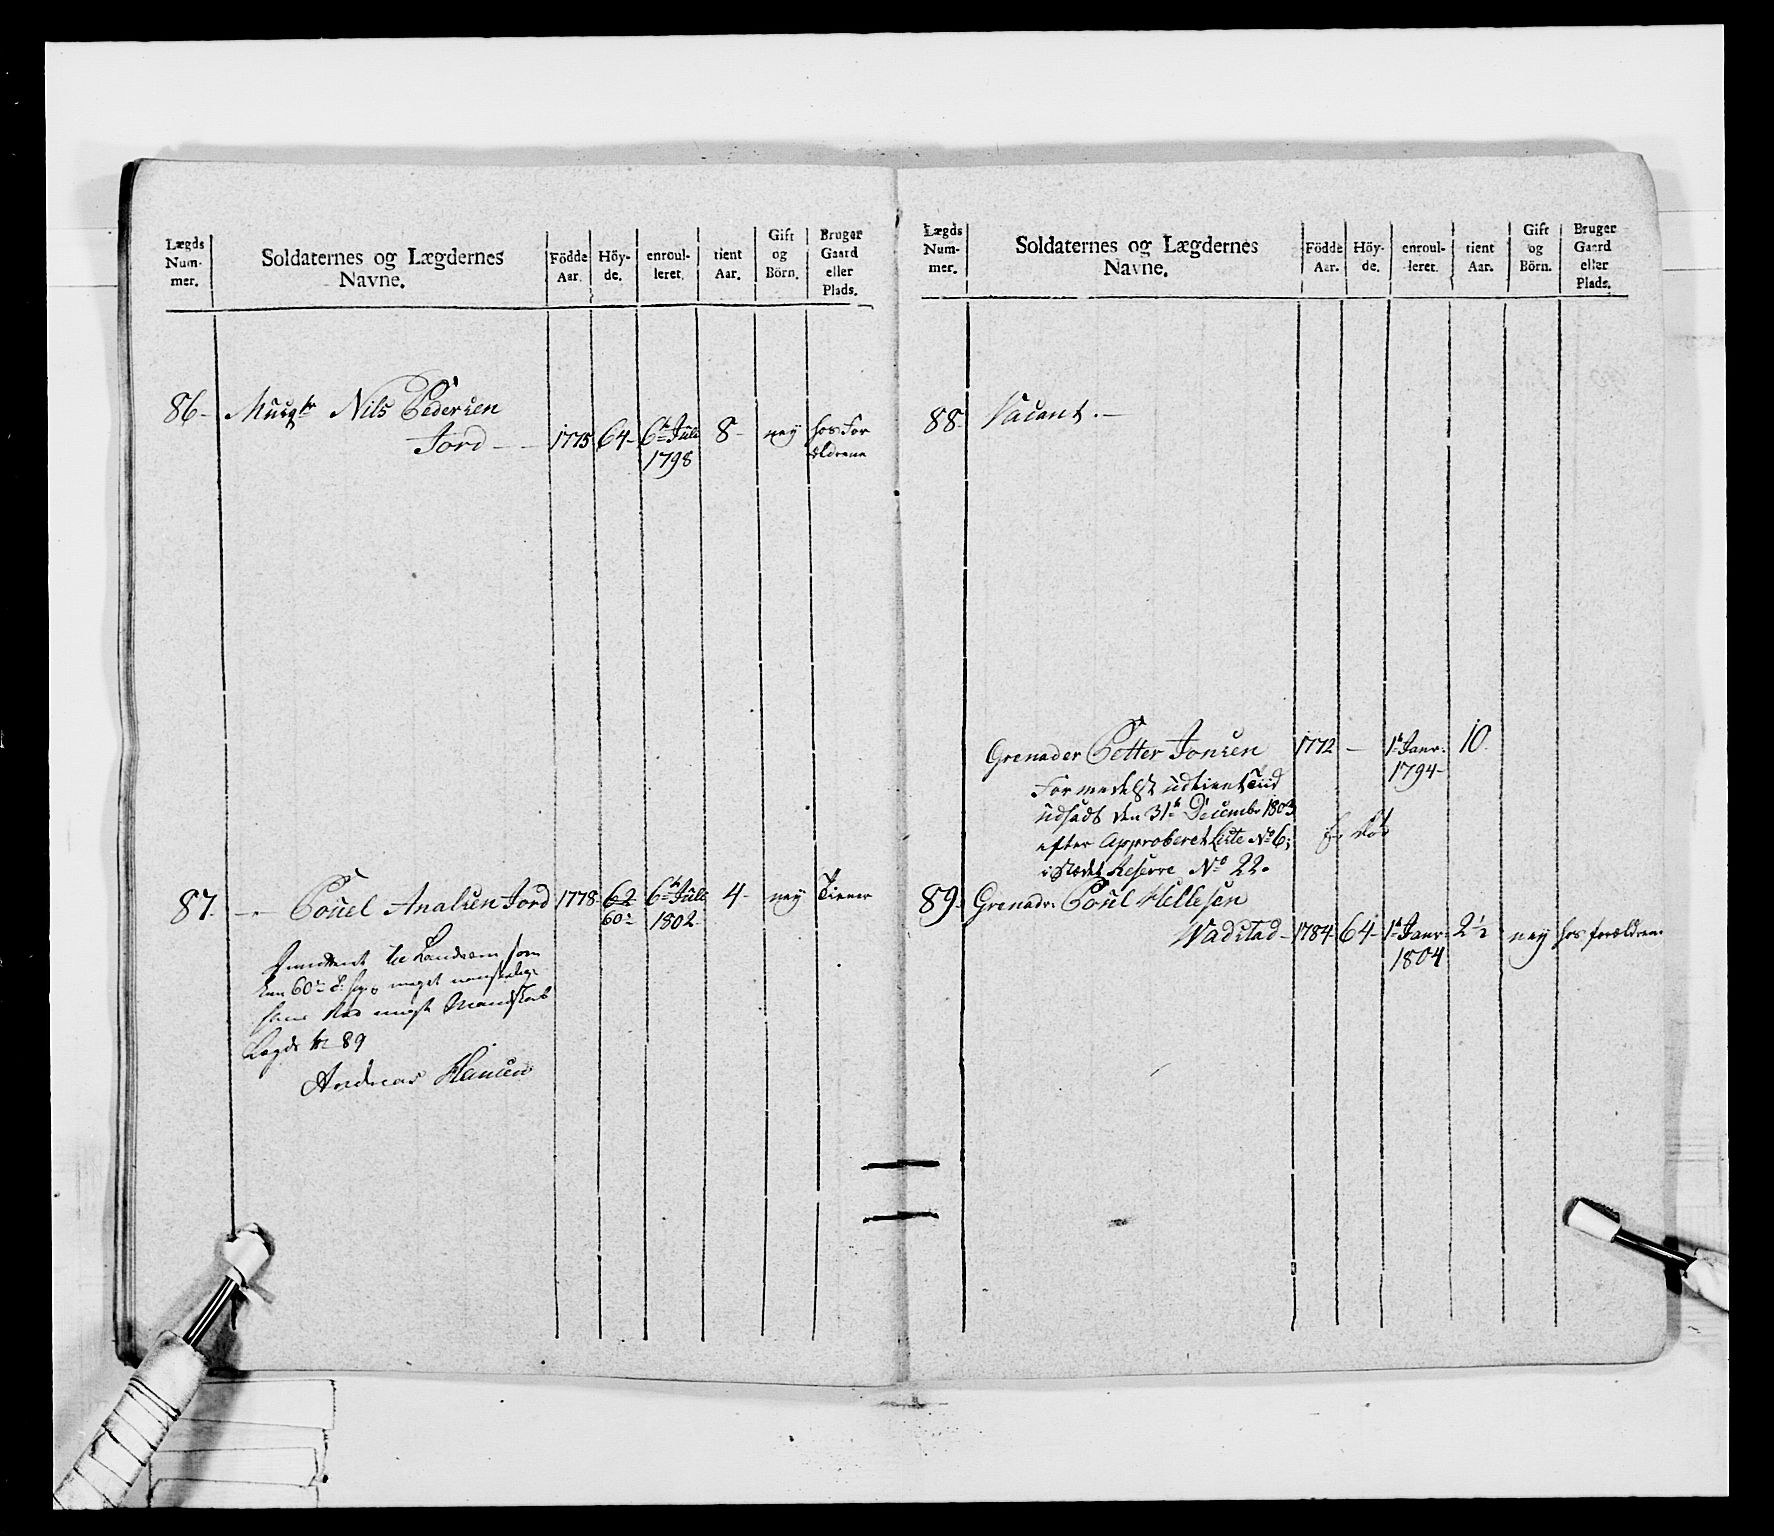 Lægds Num- mer. Soldaternes og Lægdernes Navne. Födde Aar. Höy- de. enroul- leret. tient Aar. Gift og Börn. Bruger Gaard eller Plads.
86 - Musqtr Nils Pedersen
Jord - 1775 64 - 6te Julii 1798 8 - ney hos For ældrene
87. - Pouel Analsen Jord 1778 62 6te Julii 1802 4 - ney Tiener
60
som
60 meget
Mandskab
Lægd No 89
Andreas Hansen
Lægds Num- mer. Soldaternes og Lægdernes Navne. Födde Aar. Höy- de. enroul- leret. tient Aar. Gift og Börn. Bruger Gaard eller Plads.
88 - Vacant. -
Grenader Petter Jonsen 1772 - 1te Janr. 1794 - 10.
Formedelst udtient Tiid
udsadt den 31te Decembr 1803
efter Approberet Liste No 6;
i stædet Reserve No 22.
89. Grenadr. Poul Hellesen
Wadstad - 1784 64 - 1te Janr. 1804 2 1/2 ney hos forældrene